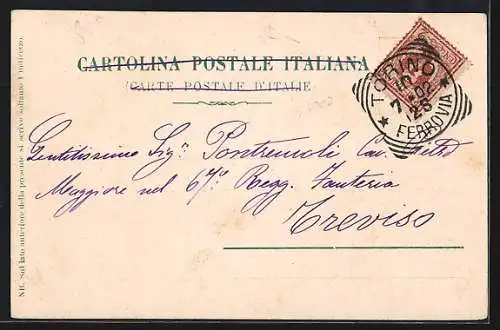 CARTOLINA POSTALE ITALIANA
(CARTE POSTALE D'ITALIE
TORINO
7 02
12 S
FERROVIA
Gentilissimo Sigr. Pontremoli Cav.
Maggiore nel 67º Regg. Fanteria
Treviso
NB. Sul lato anteriore della presente si scrive soltanto l'indirizzo.